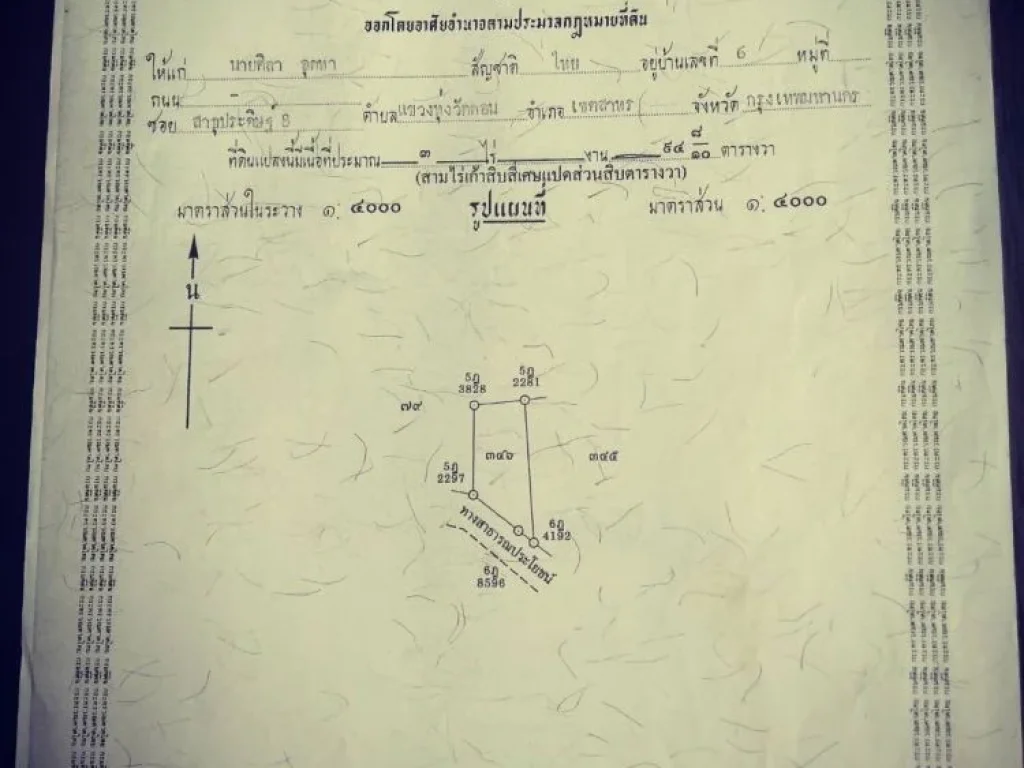 ออกโดยอาศัยอำนาจตามประมวลกฎหมายที่ดิน
ให้แก่ นายศิลา อุตทา สัญชาติ ไทย อยู่บ้านเลขที่ 6 หมู่ที่
ถนน -
ซอย สาธุประดิษฐ์ 8 ตำบล แขวงทุ่งวัดดอน อำเภอ เขตสาทร จังหวัด กรุงเทพมหานคร
ที่ดินแปลงนี้มีเนื้อที่ประมาณ ๓ ไร่ งาน ๙๔ ๘/๑๐ ตารางวา
(สามไร่เก้าสิบสี่เศษแปดส่วนสิบตารางวา)
มาตราส่วนในระวาง ๑: ๔๐๐๐ รูปแผนที่ มาตราส่วน ๑: ๔๐๐๐
น
5ฎ 3828
5ฎ 2281
๗๙
๓๔๖
๓๔๕
5ฎ 2297
6ฎ 4192
ทางสาธารณประโยชน์
6ฎ 8596